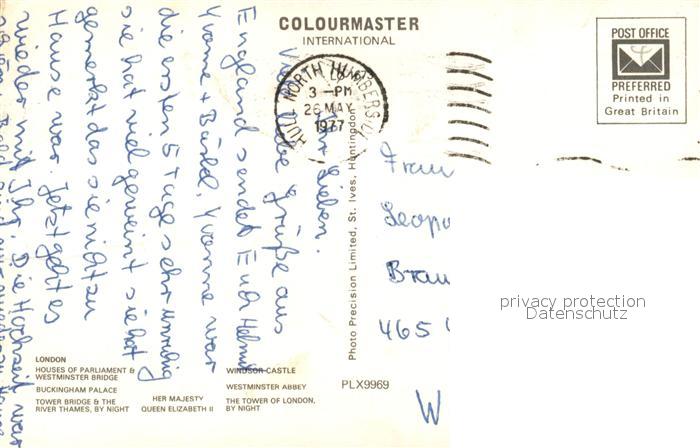 COLOURMASTER
INTERNATIONAL
POST OFFICE
PREFERRED
Printed in
Great Britain
HULL NORTH HUMBERSIDE
3 – PM
26 MAY
1977
Ihr Lieben.
Viele liebe Grüße aus
England sendet Euch Helmut
Yvonne + Bärbel. Yvonne war
die ersten 5 Tage sehr unruhig
sie hat viel geweint sie hat
gemerkt das sie nicht zu
Hause war. Jetzt geht es
wieder mit Ihr. Die Hochzeit war
Frau
Leopo
Brau
465
W
privacy protection
Datenschutz
Photo Precision Limited, St. Ives, Huntingdon
LONDON
HOUSES OF PARLIAMENT &
WESTMINSTER BRIDGE
BUCKINGHAM PALACE
TOWER BRIDGE & THE
RIVER THAMES, BY NIGHT
HER MAJESTY
QUEEN ELIZABETH II
WINDSOR CASTLE
WESTMINSTER ABBEY
THE TOWER OF LONDON,
BY NIGHT
PLX9969